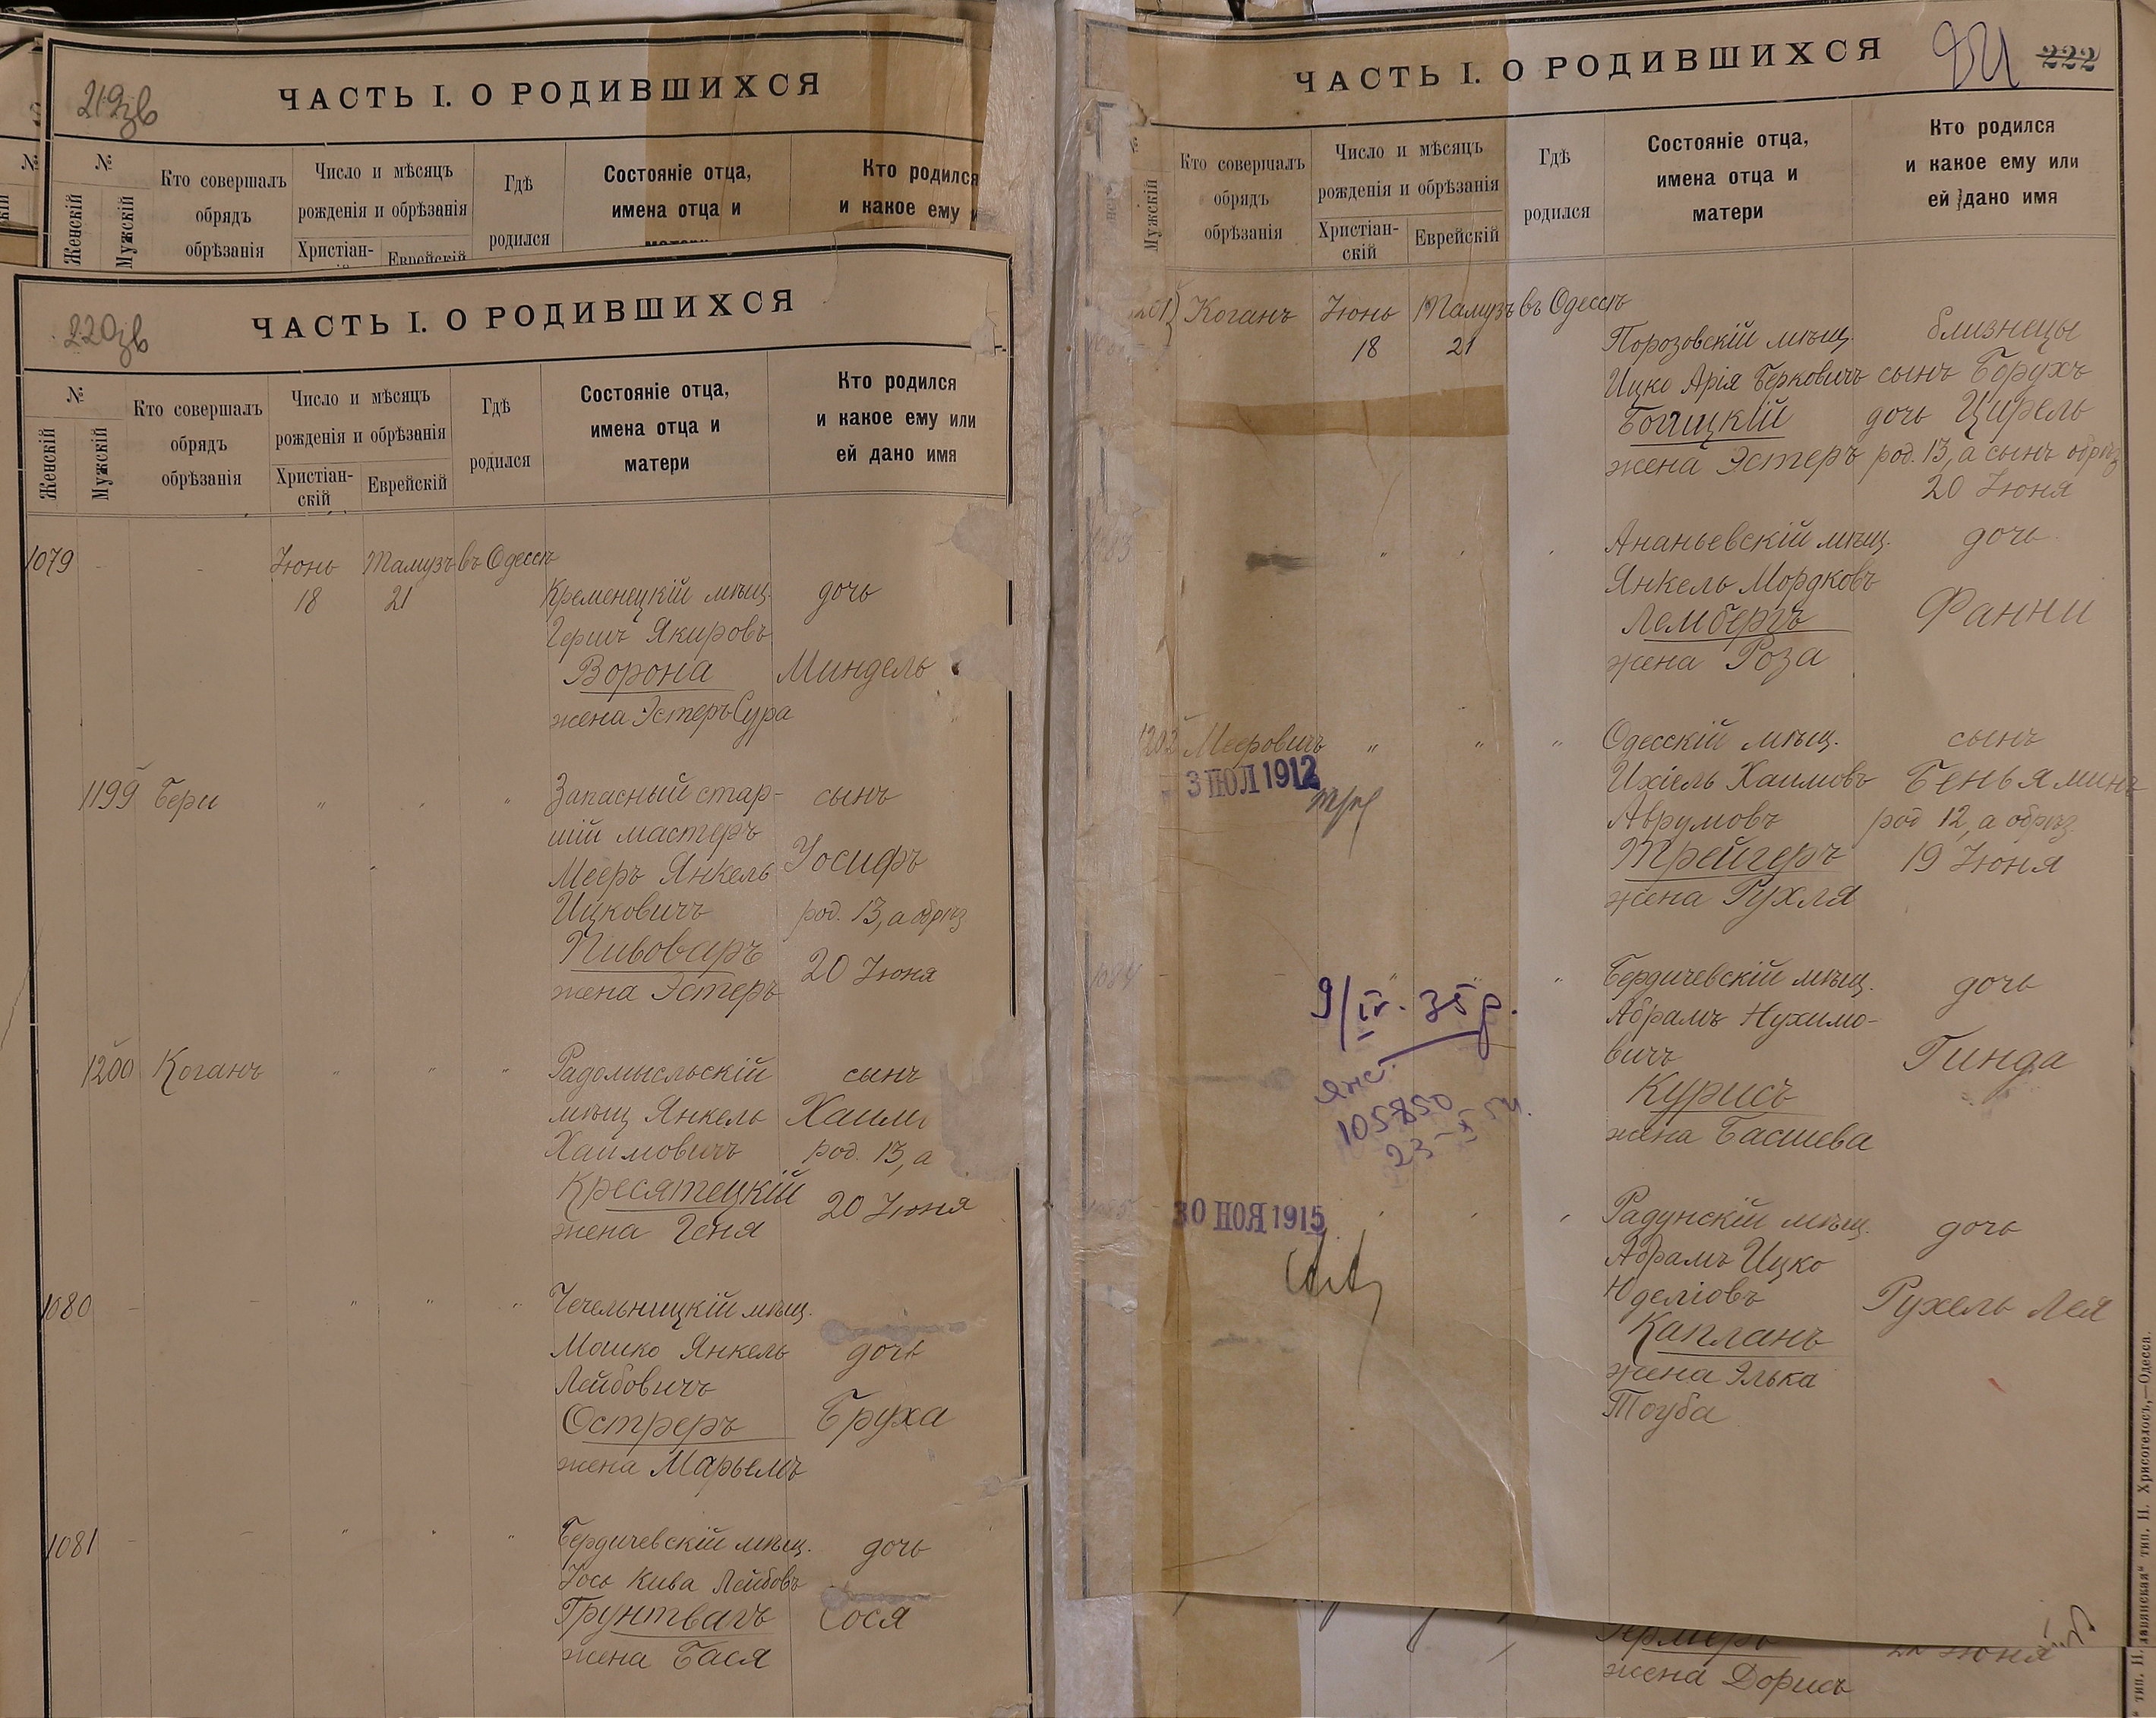 219зв
ЧАСТЬ I. О РОДИВШИХСЯ
№
№
Женскій
Мужскій
Кто совершалъ
обрядъ
обрѣзанія
Число и мѣсяцъ
рожденія и обрѣзанія
Христіан-
Еврейскій
Гдѣ
родился
Состояніе отца,
имена отца и
Кто родился
и какое ему
220зв
ЧАСТЬ I. О РОДИВШИХСЯ
№
Женскій
Мужскій
Кто совершалъ
обрядъ
обрѣзанія
Число и мѣсяцъ
рожденія и обрѣзанія
Христіан-
скій
Еврейскій
Гдѣ
родился
Состояніе отца,
имена отца и
матери
Кто родился
и какое ему или
ей дано имя
1079 - - Іюнь Тамузъ въ Одессѣ
18 21 Кременецкій мѣщ. дочь
Гершъ Якировъ
Ворона Миндель
жена Эстеръ Сура
1199 Бери " " " Запасный стар- сынъ
шій мастеръ
Мееръ Янкель Іосифъ
Ицковичъ род. 13, а обрѣз
Пивоваръ 20 Іюня
жена Эстеръ
1200 Коганъ " " " Радомысльскій сынъ
мѣщ Янкель Хаимъ
Хаимовичъ род. 13, а
Кресятецкій 20 Іюня
жена Геня
1080 - - " " " Чечельницкій мѣщ.
Мошко Янкель дочь
Лейбовичъ
Остреръ Бруха
жена Марьемъ
1081 - - " " " Бердичевскій мѣщ. дочь
Іось Кива Лейбовъ
Грунтвагъ Сося
жена Бася
ЧАСТЬ I. О РОДИВШИХСЯ
222
Мужскій
Кто совершалъ
обрядъ
обрѣзанія
Число и мѣсяцъ
рожденія и обрѣзанія
Христіан-
скій
Еврейскій
Гдѣ
родился
Состояніе отца,
имена отца и
матери
Кто родился
и какое ему или
ей дано имя
Коганъ Іюнь Тамузъ въ Одессѣ
18 21 Порозовскій мѣщ. близнецы
Ицко Арія Берковичъ сынъ Борухъ
Богицкій дочь Цирель
жена Эстеръ род. 13, а сынъ обрѣз
20 Іюня
1083 " " " Ананьевскій мѣщ. дочь
Янкель Мордковъ
Лембергъ Фанни
жена Роза
1202 Мееровичъ " " " Одесскій мѣщ. сынъ
3 ІЮЛ 1912
Ихіель Хаимовъ Беньяминъ
Аврумовъ род 12, а обрѣз.
Трейгеръ 19 Іюня
жена Рухля
1084 - - " " " Бердичевскій мѣщ. дочь
9/IV. 35 р.
Абрамъ Нухимо-
вичъ Гинда
105850
Курисъ
жена Басшева
1085
30 НОЯ 1915
Радунскій мѣщ. дочь
Абрамъ Ицко
Юделіовъ Рухель Лея
Капланъ
жена Элька
Тоуба
жена Дорисъ
тип. Н. Хрисогелосъ,—Одесса.